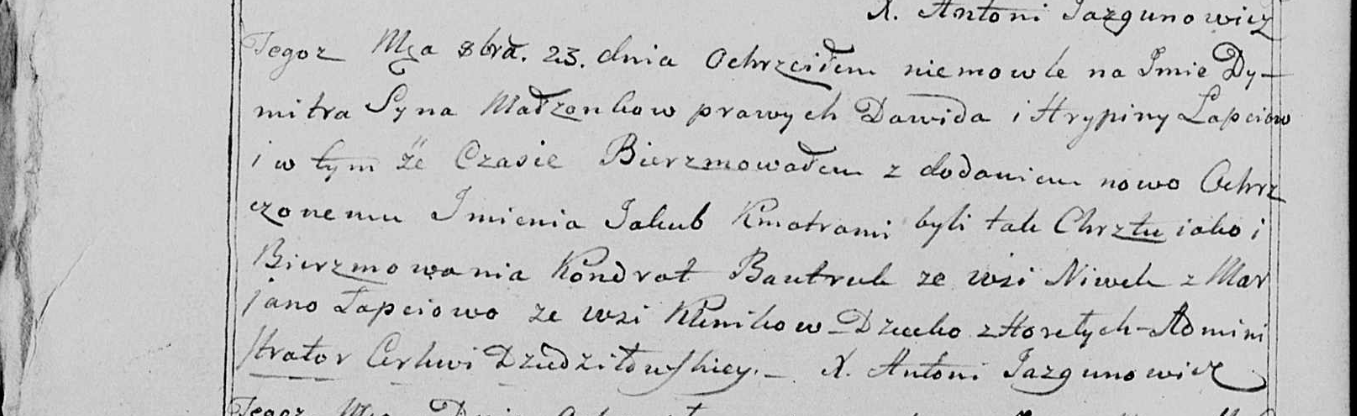 X. Antoni Jazgunowicz
Tegoz Mca 8bra. 23. dnia Ochrzciłem niemowle na Imie Dy-
mitra Syna Małzonkow prawych Dawida i Hrypiny Łapciow
i w tym że Czasie Bierzmowałem z dodaniem nowo Ochrz
czonemu Imienia Jakub Kmotrami byli tak Chrztu iako i
Bierzmowania Kondrat Bautruk ze wsi Niwek z Mar
jano Łapciowo ze wsi Klenikow - Dziecko z Horełych - Admini
strator Cerkwi Dziedziłowskiey. - X. Antoni Jazgunowicz
Tegoz Mca